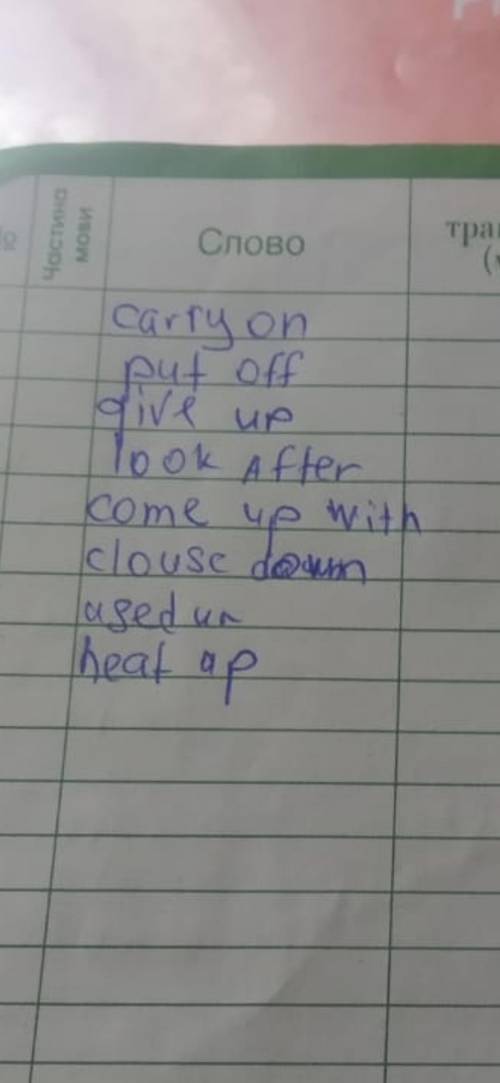 № Частина мови Слово тран
(
carry on
put off
give up
look After
come up with
clouse down
used un
heat up